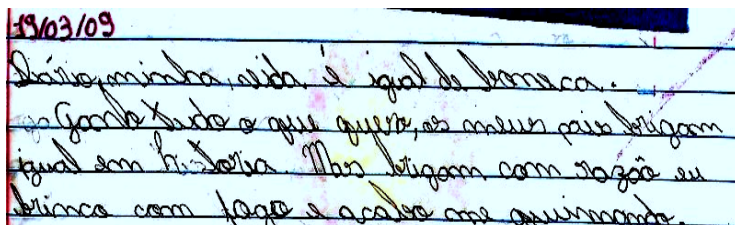 19/03/09
Diário, minha vida é igual de boneca.
Ganho tudo o que quero, os meus pais brigam
igual em história Mas brigam com razão eu
brinco com fogo e acabo me queimando.